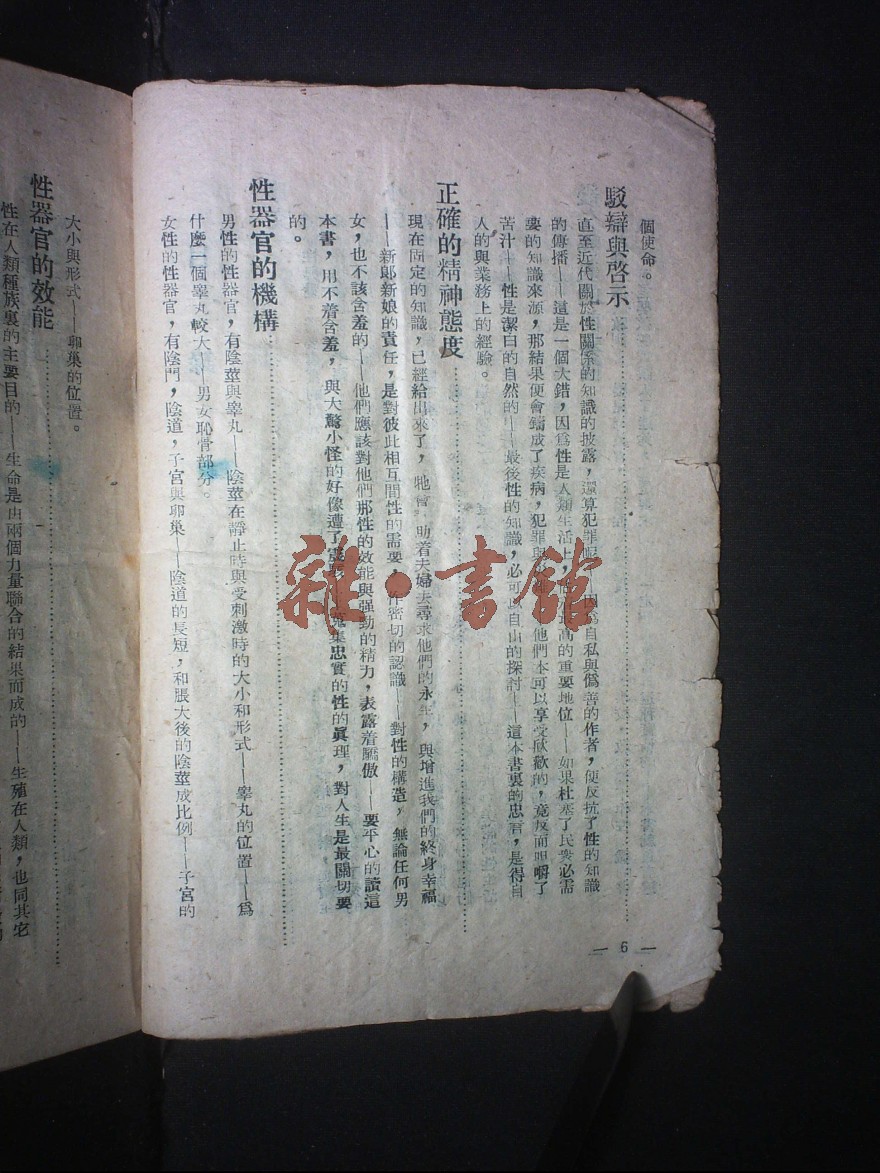 個使命。
駁辯與啓示
直至近代關於性關係的知識的披露,還算犯罪呢 因爲自私與僞善的作者,便反抗了性的知識
的傳播——這是一個大錯,因爲性是人類生活上, 最高的重要地位——如果杜塞了民衆必需
要的知識來源,那結果便會鑄成了疾病,犯罪與 他們本可以享受欣歡的,竟反而咀嚼了
苦汁——性是潔白的自然的——最後性的知識,必可 自由的探討——這本書裏的忠言,是得自
人的與業務上的經驗。
正確的精神態度
現在固定的知識,已經給出來了,牠會 助着夫婦去尋求他們的永生,與增進我們的終身幸福
——新郞新娘的責任,是對彼此相互間性的需要, 作密切的認識——對性的構造,無論任何男
女,也不該含羞的——他們應該對他們那性的效能與强勁的精力,表露着驕傲——要平心的讀這
本書,用不着含羞,與大驚小怪的好像遭了 蒐集忠實的性的眞理,對人生是最關切要
的。
性器官的機構
男性的性器官,有陰莖與睾丸——陰莖在靜止時與受刺激時的大小和形式——睾丸的位置——爲
什麼一個睾丸較大——男女恥骨部分。
女性的性器官,有陰門,陰道,子宮與卵巢——陰道的長短,和脹大後的陰莖成比例——子宮的
— 6 —
大小與形式——卵巢的位置。
性器官的效能
性在人類種族裏的主要目的——生命是由兩個力量聯合的結果而成的——生殖在人類,也同其它
雜·書館